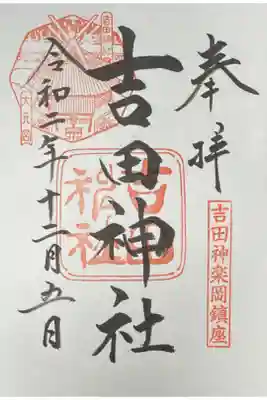 奉拝
吉田神楽岡鎮座
吉田神社
吉田
神社
大元宮
令和二年十二月五日